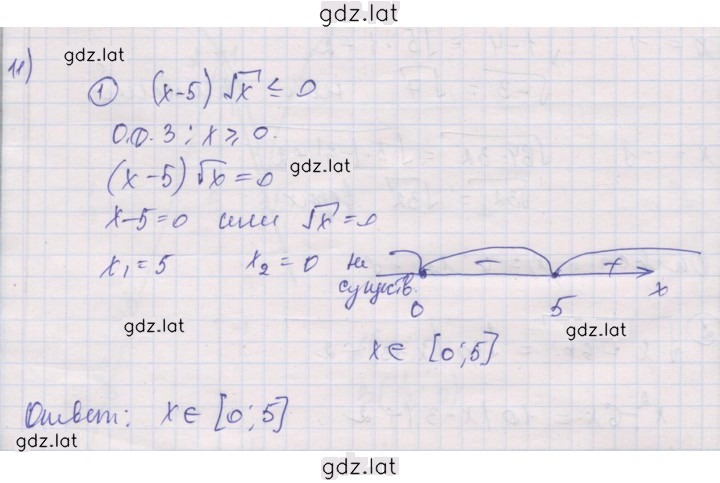 gdz.lat
11)
gdz.lat
① (x-5) √x ≤ 0
О.О.З: x ≥ 0.
(x-5) √x = 0
gdz.lat
x-5=0 или √x = 0
x₁ = 5 x₂ = 0
не существ. - + x
0 5
gdz.lat
gdz.lat
x ∈ [0;5]
Ответ: x ∈ [0;5]
gdz.lat
gdz.lat
gdz.lat